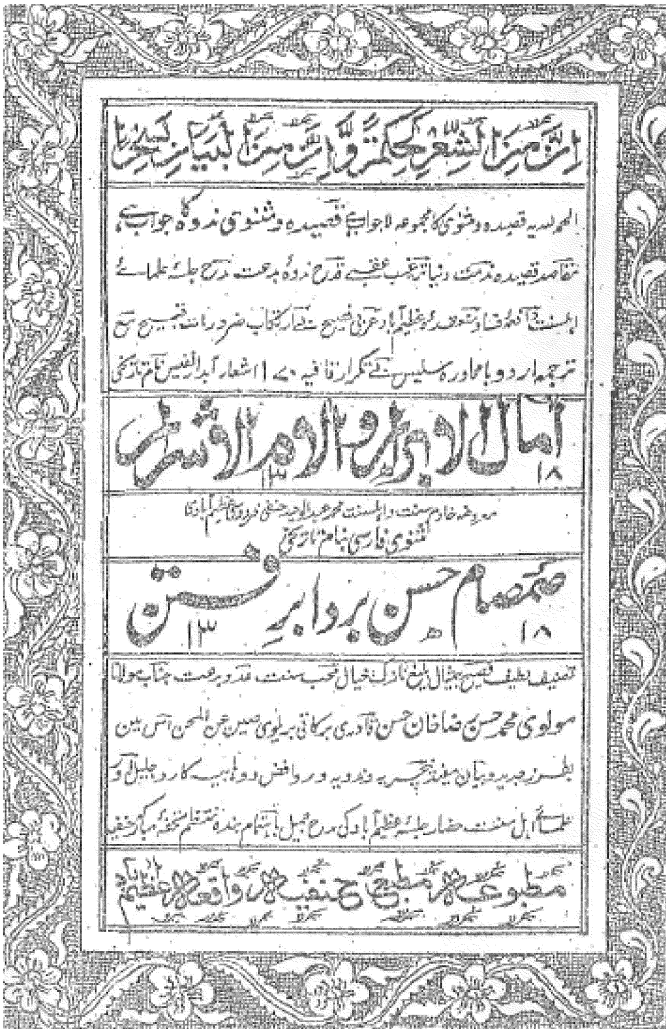 ان من الشعر لحکمة وان من البیان لسحرا
الحمدللہ یہ قصیدہ و مثنوی کا مجموعہ لاجواب ہے قصیدہ و مثنوی ندوہ کا جواب ہے،
مقاصد قصیدہ مذمت دنیا قدح ندوہ بدعت مدح جلسہ علمائے
اہلسنت
ترجمہ اردو بامحاورہ سلیس بے تکرار قافیہ ۱۷۰ اشعار نام تاریخی
آمال الابرار وآلام الاشرار
۱۳ ۱۸
معروضہ خادم سنت و اہلسنت محمد عبدالوحید حنفی فردوسی عظیم آبادی
مثنوی فارسی بنام تاریخی
صمصام حسن بر دابر فتن
۱۳ھ ۱۸
تصنیف لطیف فصیح بیمثال بلیغ نازک خیال محب سنت عدو بدعت جناب مولانا
مولوی محمد حسن رضا خان حسن قادری برکاتی بریلوی صین عن المحن اس میں
بطرز جدید و بیان مفید نیچریہ و ندویہ و روافض و وہابیہ کا رد جلیل اور
علمائے اہل سنت حضار جلسہ عظیم آباد کی مدح جمیل باہتمام بندہ منتظم تحفہ مبارکہ حنفیہ
مطبوعہ مطبع حنفیہ واقعہ عظیم آباد